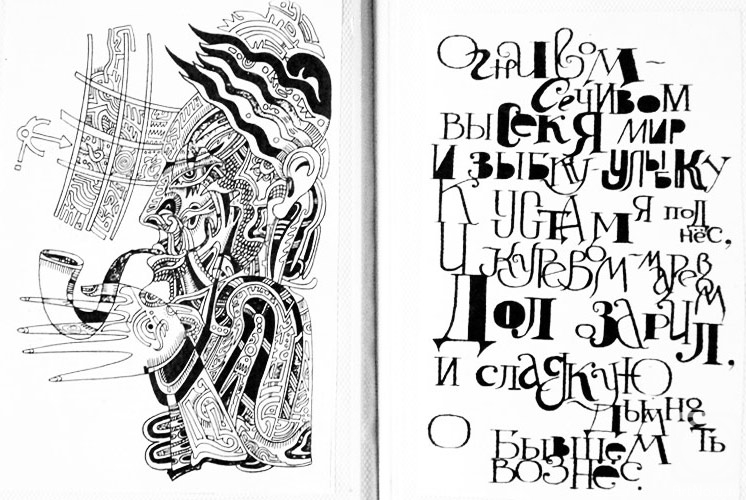 Огнивом-
сечивом
высек я мир
и зыбку-улыбку
к устам я под
нёс,
И куревом-марев
ом
Дол озарил,
и сладкую
дымность
о бывшем
вознёс.